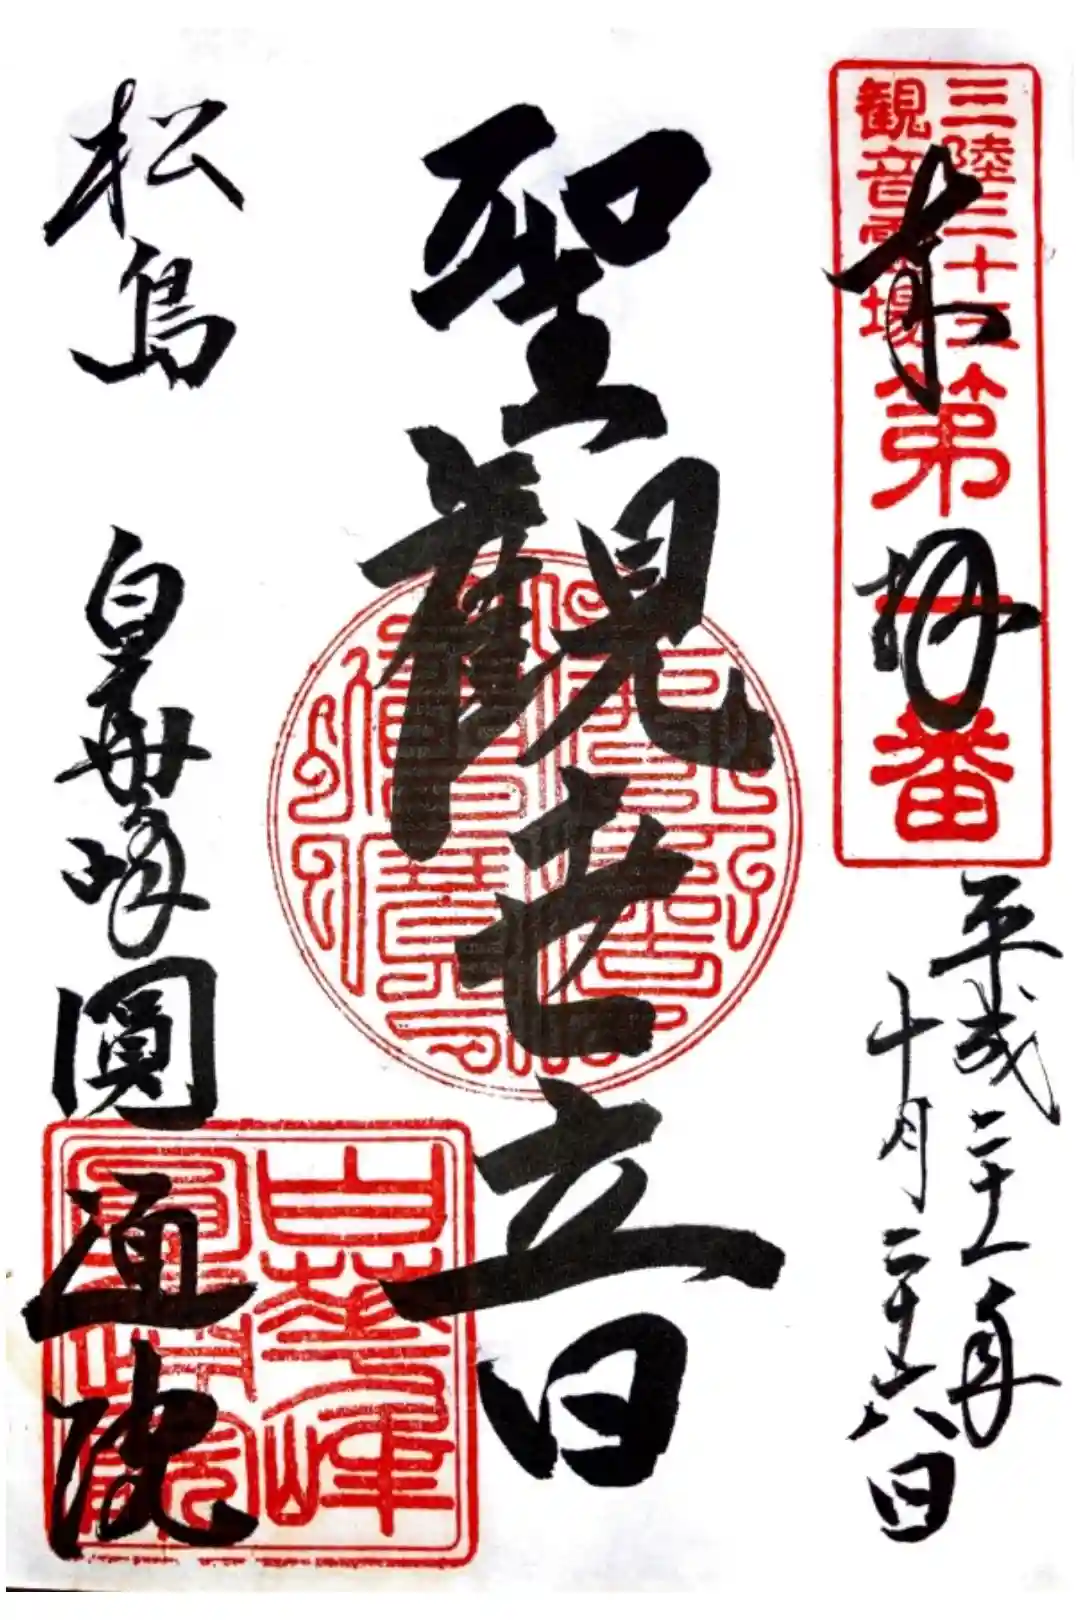 三陸三十三
観音霊場
第一番
奉拝
平成二十一年
十月二十六日
聖觀世音
松島
白華峰圓通院
白華峰